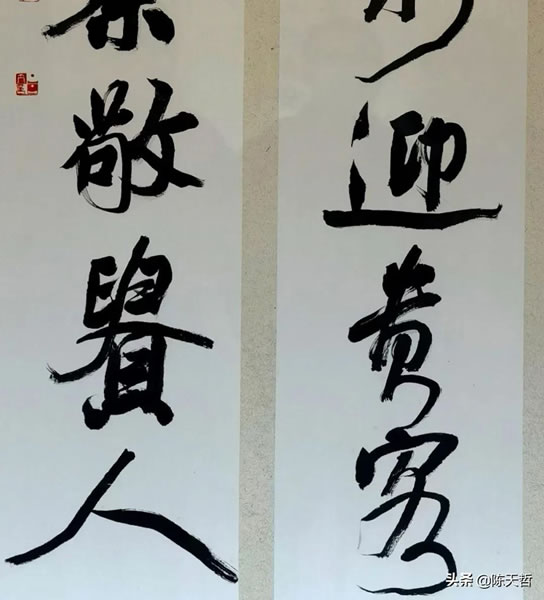 迎贵客
敬賢人
头条 @陈天哲